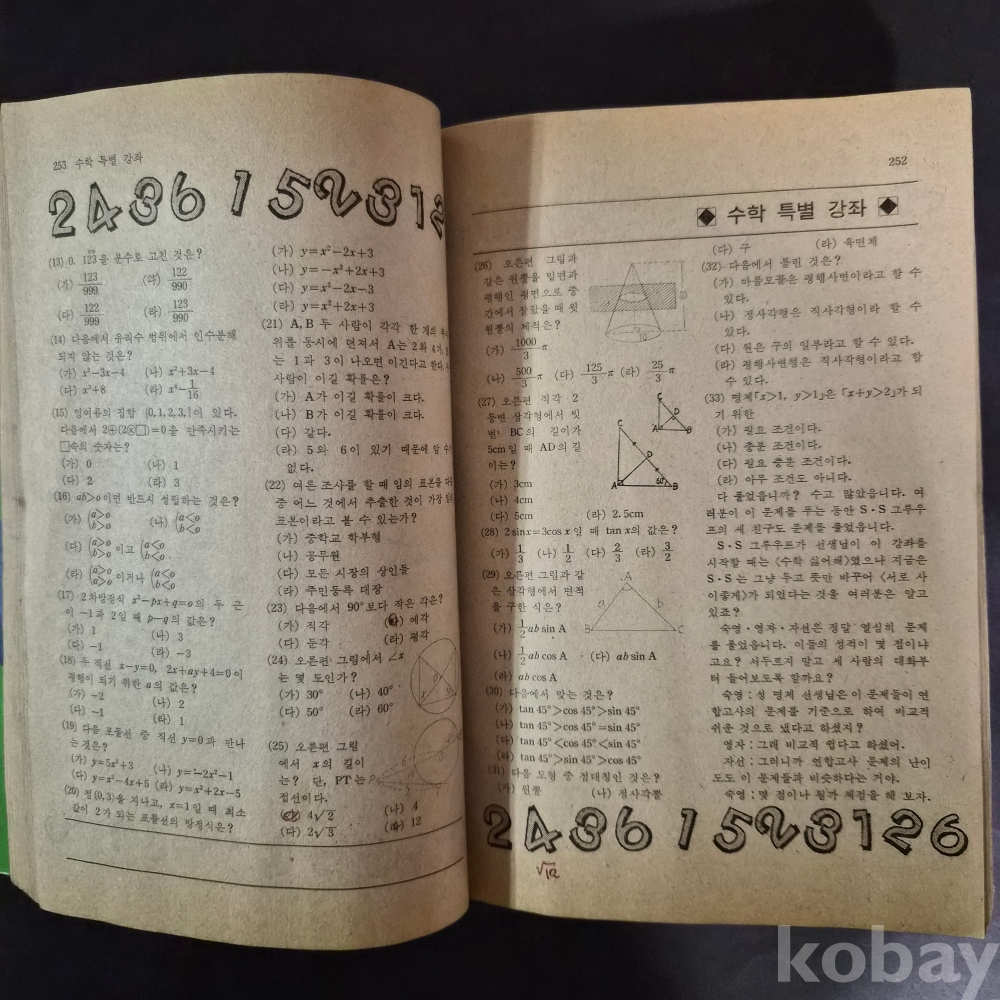 253 수학 특별 강좌
2436 152312
(13) 0.123을 분수로 고친 것은?
(가) 123/999 (나) 122/990
(다) 122/999 (라) 123/990
(14) 다음에서 유리수 범위에서 인수분해
되지 않는 것은?
(가) x²−3x−4 (나) x²+3x−4
(다) x³+8 (라) x⁴−1/16
(15) 잉여류의 집합 {0,1,2,3,}이 있다.
다음에서 2⊕(2⊗□)=0을 만족시키는
□속의 숫자는?
(가) 0 (나) 1
(다) 2 (라) 3
(16) ab>o이면 반드시 성립하는 것은?
(가) {a>o b>o (나) {a<o b<o
(다) {a>o b>o 이고 {a<o b<o
(라) {a>o a>o 이거나 {a<o b<o
(17) 2차방정식 x²−px+q=o의 두 근
이 −1과 2일 때 p−q의 값은?
(가) 1 (나) 3
(다) −1 (라) −3
(18) 두 직선 x−y=0, 2x+ay+4=0이
평행이 되기 위한 a의 값은?
(가) −2 (나) 2
(다) −1 (라) 1
(19) 다음 포물선 중 직선 y=0과 만나
는 것은?
(가) y=5x²+3 (나) y=−2x²−1
(다) y=x²−4x+5 (라) y=x²+2x−5
(20) 점(0,3)을 지나고, x=1일 때 최소
값이 2가 되는 포물선의 방정식은?
(가) y=x²−2x+3
(나) y=−x²+2x+3
(다) y=x²−2x−3
(라) y=x²+2x+3
(21) A, B 두 사람이 각각 한 개의
위를 동시에 던져서 A는 2와 4가
는 1과 3이 나오면 이긴다고 한다.
사람이 이길 확률은?
(가) A가 이길 확률이 크다.
(나) B가 이길 확률이 크다.
(다) 같다.
(라) 5와 6이 있기 때문에 알 수
없다.
(22) 여론 조사를 할 때 임의 표본을 다
중 어느 것에서 추출한 것이 가장
표본이라고 볼 수 있는가?
(가) 중학교 학부형
(나) 공무원
(다) 모든 시장의 상인들
(라) 주민등록 대장
(23) 다음에서 90°보다 작은 각은?
(가) 직각 (나) 예각
(다) 둔각 (라) 평각
(24) 오른편 그림에서 ∠x
는 몇 도인가?
(가) 30° (나) 40°
(다) 50° (라) 60°
(25) 오른편 그림
에서 x의 길이
는? 단, PT는
접선이다.
(가) 4√2 (나) 4
(다) 2√3 (라) 12
252
수학 특별 강좌
(26) 오른편 그림과
같은 원뿔을 밑면과
평행인 평면으로 중
간에서 잘랐을 때 윗
원뿔의 체적은?
10
10
(가) 1000/3 π
(나) 500/3 π (다) 125/3 π (라) 25/3 π
(27) 오른편 직각 2
등변 삼각형에서 빗
변 BC의 길이가
5cm일 때 AD의 길
이는?
C
D
A B
C
D
A 60° B
(가) 3cm
(나) 4cm
(다) 5cm (라) 2.5cm
(28) 2sinx=3cosx일 때 tanx의 값은?
(가) 1/3 (나) 1/2 (다) 2/3 (라) 3/2
(29) 오른편 그림과 같
은 삼각형에서 면적
을 구한 식은?
A
a b
B C
(가) 1/2 ab sin A
(나) 1/2 ab cos A (다) ab sin A
(라) ab cos A
(30) 다음에서 맞는 것은?
(가) tan 45°>cos 45°>sin 45°
(나) tan 45°>cos 45°=sin 45°
(다) tan 45°<cos 45°<sin 45°
(라) tan 45°>sin 45°>cos 45°
(31) 다음 도형 중 점대칭인 것은?
(가) 원뿔 (나) 정사각뿔
(다) 구 (라) 육면체
(32) 다음에서 틀린 것은?
(가) 마름모꼴은 평행사변이라고 할 수
있다.
(나) 정사각형은 직사각형이라 할 수
있다.
(다) 원은 구의 일부라고 할 수 있다.
(라) 평행사변형은 직사각형이라고 할
수 있다.
(33) 명제「x>1, y>1」은「x+y>2」가 되
기 위한
(가) 필요 조건이다.
(나) 충분 조건이다.
(다) 필요 충분 조건이다.
(라) 아무 조건도 아니다.
다 풀었읍니까? 수고 많았읍니다. 여
러분이 이 문제를 푸는 동안 S·S그루우
프의 세 친구도 문제를 풀었읍니다.
S·S 그루우프가 선생님이 이 강좌를
시작할 때는 〈수학 싫어해〉였으나 지금은
S·S는 그냥 두고 뜻만 바꾸어 〈서로 사
이좋게〉가 되었다는 것을 여러분은 알고
있죠?
숙영·영자·자선은 정말 열심히 문제
를 풀었읍니다. 이들의 성적이 몇 점이냐
고요? 서두르지 말고 세 사람의 대화부
터 들어보도록 할까요?
숙영 : 성 명제 선생님은 이 문제들이 연
합고사의 문제를 기준으로 하여 비교적
쉬운 것으로 냈다고 하셨지?
영자 : 그래 비교적 쉽다고 하셨어.
자선 : 그러니까 연합고사 문제의 난이
도도 이 문제들과 비슷하다는 거야.
숙영 : 몇 점이나 될까 채점을 해 보자.
2436 1523126
√12
kobay